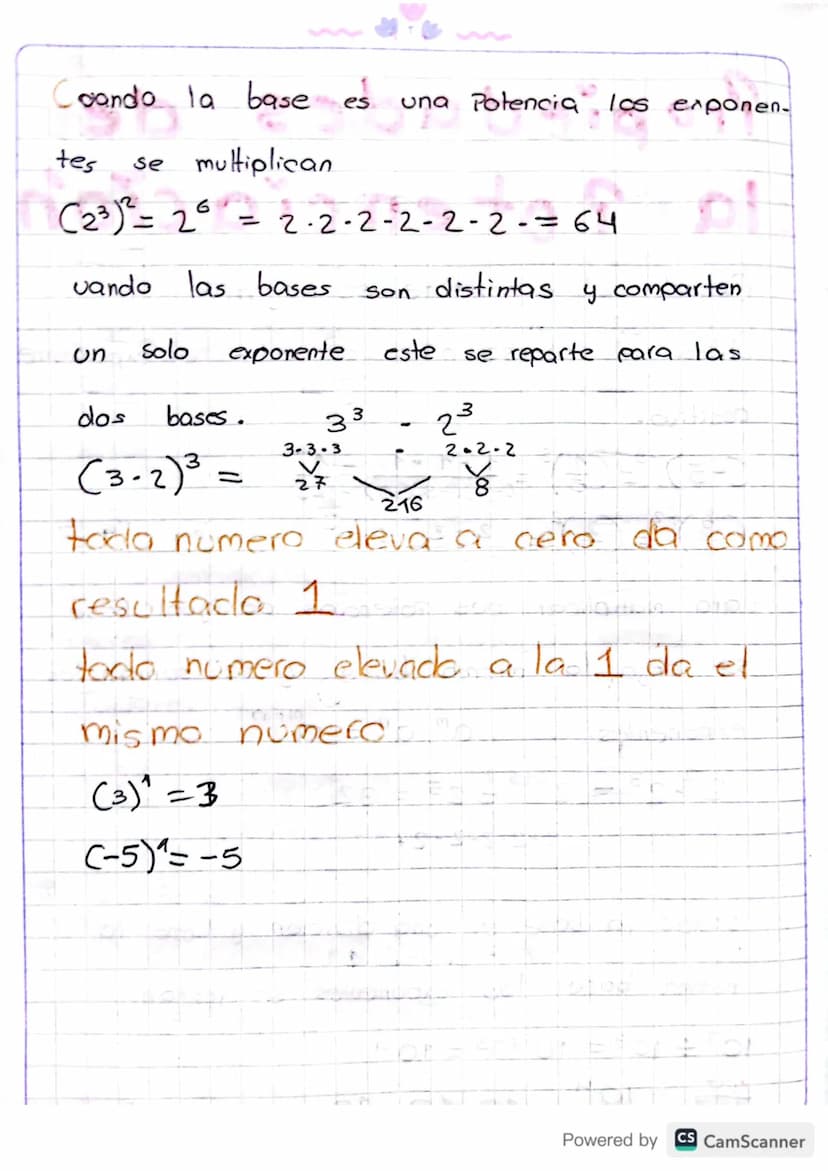 Cuando la base es una Potencia los exponen-
tes se multiplican
(2³)² = 2⁶ = 2·2·2-2-2-2-= 64
uando las bases son distintas y comparten
un solo exponente este se reparte para las
dos bases. 3³ - 2³
3·3·3 · 2·2·2
(3·2)³ = 27 8
216
todo numero eleva a cero da como
resultado 1
todo numero elevado a la 1 da el
mismo numero
(3)¹ = 3
(-5)¹ = -5
Powered by CS CamScanner